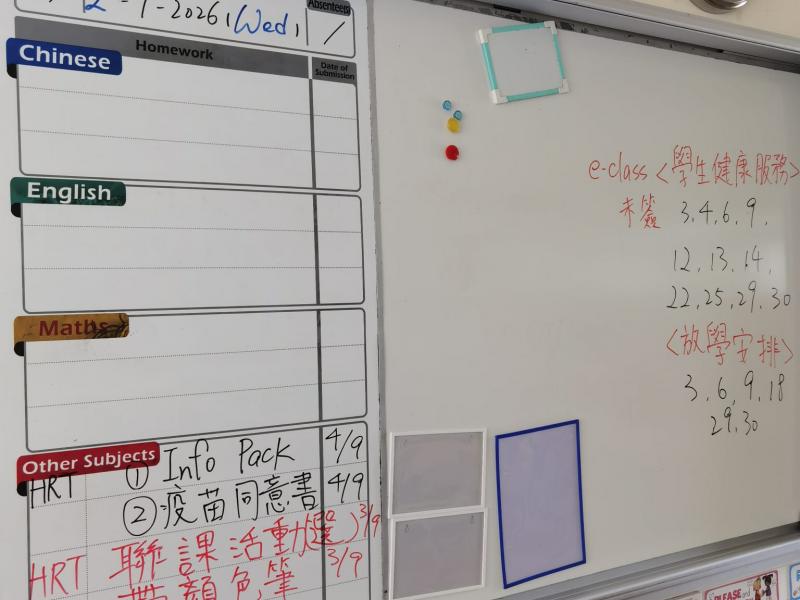 2-9-2026, Wed,
Absentee(s)
/
Homework
Date of Submission
Chinese
English
Maths
Other Subjects
HRT ① Info Pack 4/9
② 疫苗同意書 4/9
HRT 聯課活動(選) 3/9
帶顏色筆 3/9
e-class <學生健康服務>
未簽 3,4,6,9,
12,13,14,
22,25,29,30
<放學安排>
3,6,9,18
29,30
PLEASE and